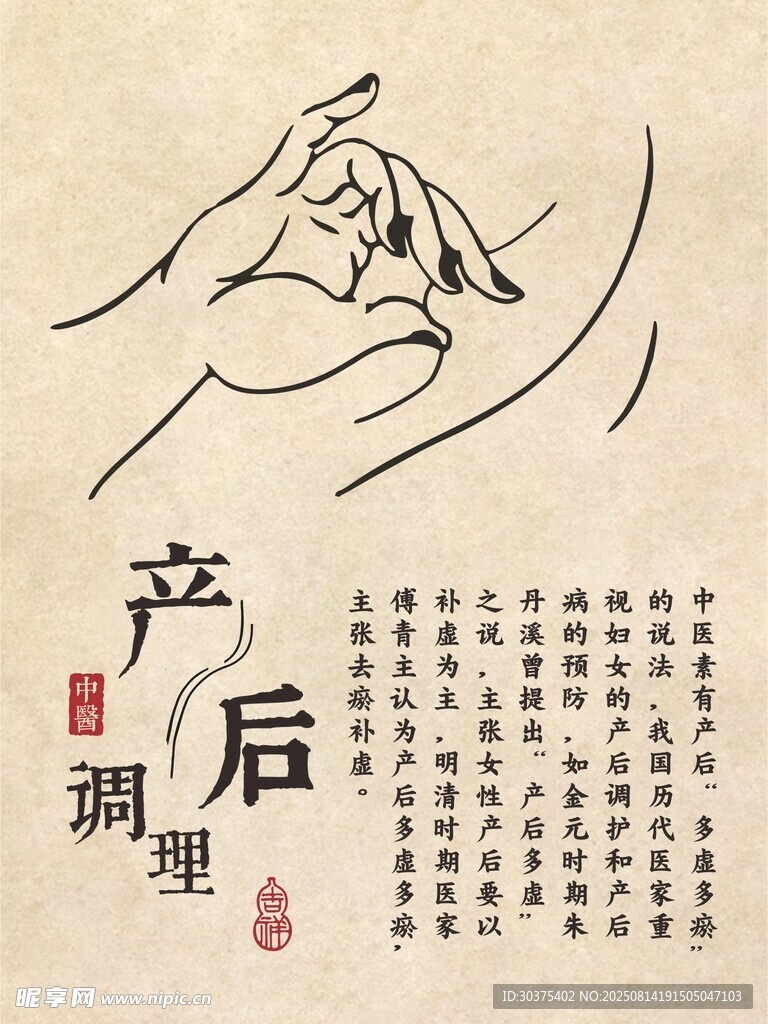 产后
调理
中醫
吉祥
中医素有产后“多虚多瘀”
的说法，我国历代医家重
视妇女的产后调护和产后
病的预防，如金元时期朱
丹溪曾提出“产后多虚”
之说，主张女性产后要以
补虚为主，明清时期医家
傅青主认为产后多虚多瘀，
主张去瘀补虚。
昵享网 www.nipic.cn
ID:30375402 NO:20250814191505047103